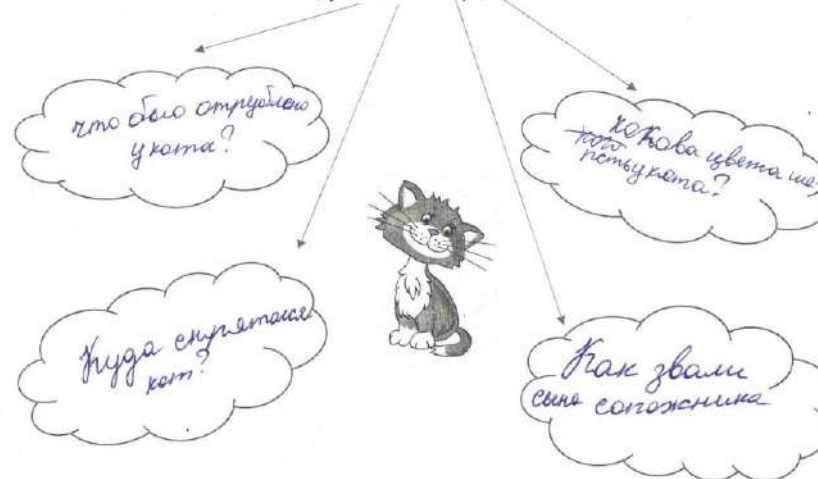 что было отрублено
у кота?
какова цвета ше-
рсть у кота?
Куда спрятался
кот?
Как звали
сына сапожника